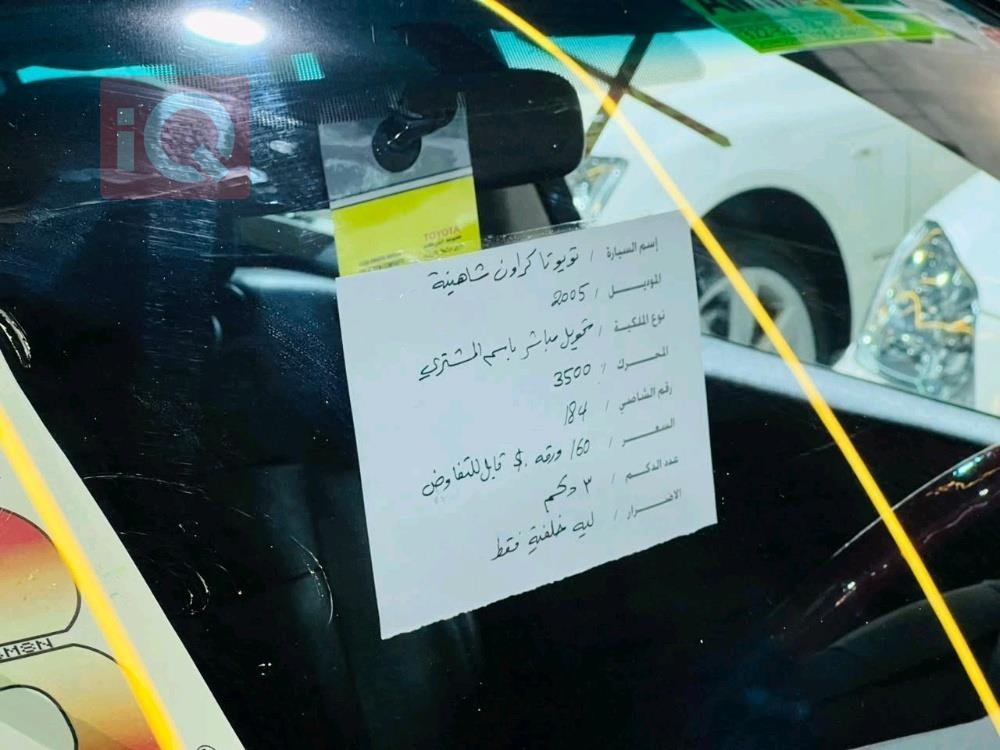 iQ
TOYOTA
إسم السيارة / تويوتا كراون شاهينة
الموديل / 2005
نوع الملكية / تحويل مباشر باسم المشتري
المحرك / 3500
رقم الشاصي / 184
السعر / 160 ورقه $ قابل للتفاوض
عدد الدكم / ٣ دكم
الاضرار / ليه خلفية فقط